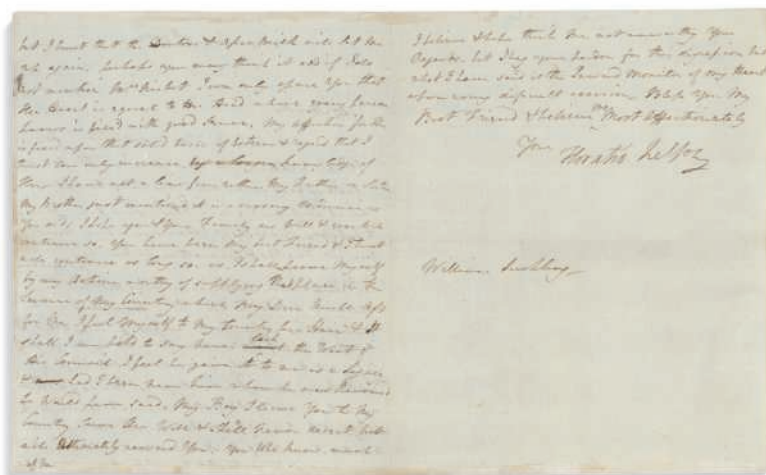 but I trust that the & will let me
out again, perhaps you may think it odd if I do
not mention Mrs Nisbet I can only assure you that
Her Heart is equal to and
honor is filled with good sense, My affection for her
is fixed upon that solid basis of Esteem & regard that I
trust can only increase by a longer knowledge of
Her, I have not a line from either My Father or Sister
My Brother just mentioned it in a cursory manner as
you did, I hope you & your Family are well & will
continue so. You have been My best Friend & I trust
will continue as long so, as I shall prove Myself
by my Actions worthy of supplying that place in the
Service of My Country which My Dear Uncle left
for Me, I feel Myself to My Country his Heir, & It
shall, I am bold to say, never lack the Want of
his Counsel. I feel he gave it to me as a Legacy
& had I been near him when he was
he would have said, My Boy I leave You to My
Country, Serve Her Well & she'll never desert but
will Ultimately reward You, You Who know much
of Me
I believe & hope think me not unworthy Your
Regards. But I beg your Pardon for this digression but
what I have said is the Inward Monitor of My Heart
upon every difficult occasion. Bless You My
Best Friend & believe me Most Affectionately
Your
Horatio Nelson
William Suckling